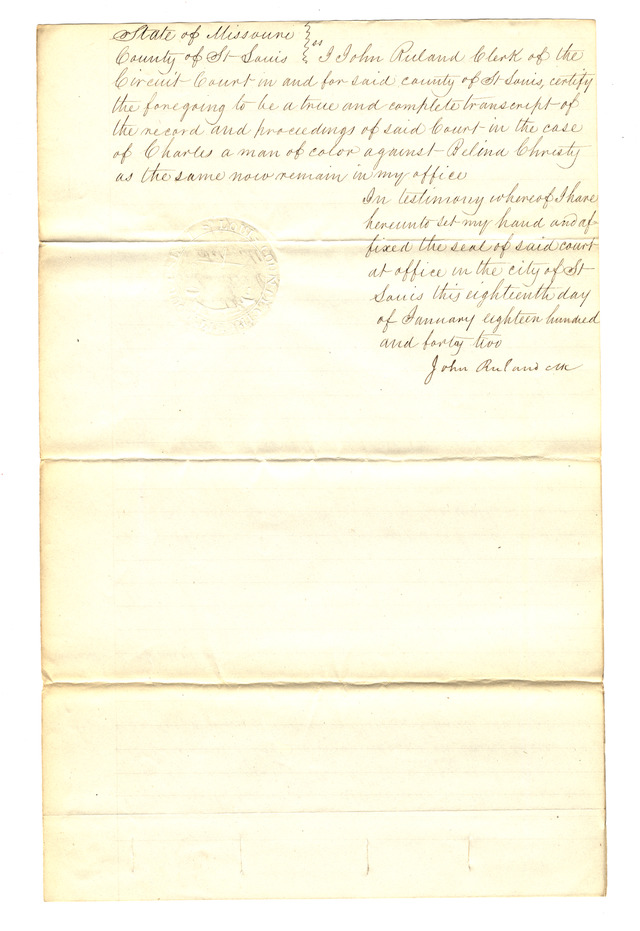 State of Missouri
County of St Louis } ss I John Ruland Clerk of the
Circuit Court in and for said county of St Louis, certify
the foregoing to be a true and complete transcript of
the record and proceedings of said Court in the case
of Charles a man of color against Belina Christy
as the same now remain in my office
In testimony whereof I have
hereunto set my hand and af-
fixed the seal of said court
at office in the city of St
Louis this eighteenth day
of January eighteen hundred
and forty two
John Ruland Clk